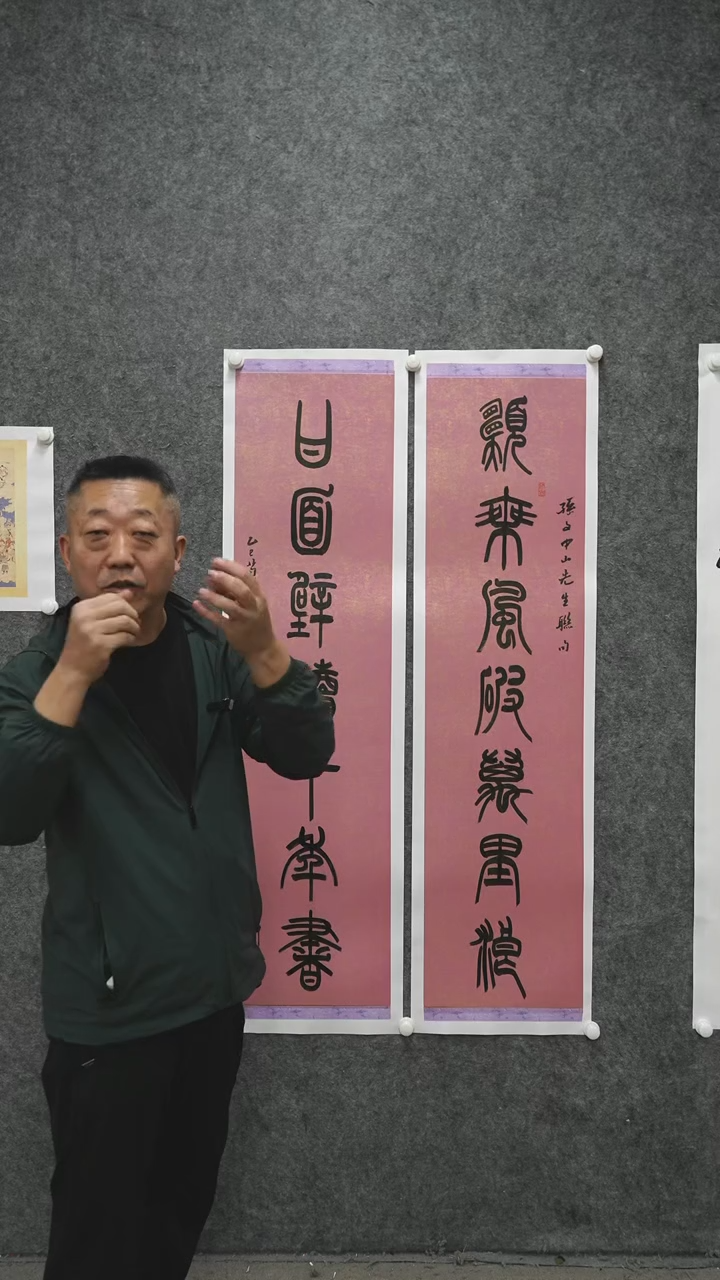 孫文中山先生聯句
願乘風破萬里浪
甘面壁讀十年書
乙巳